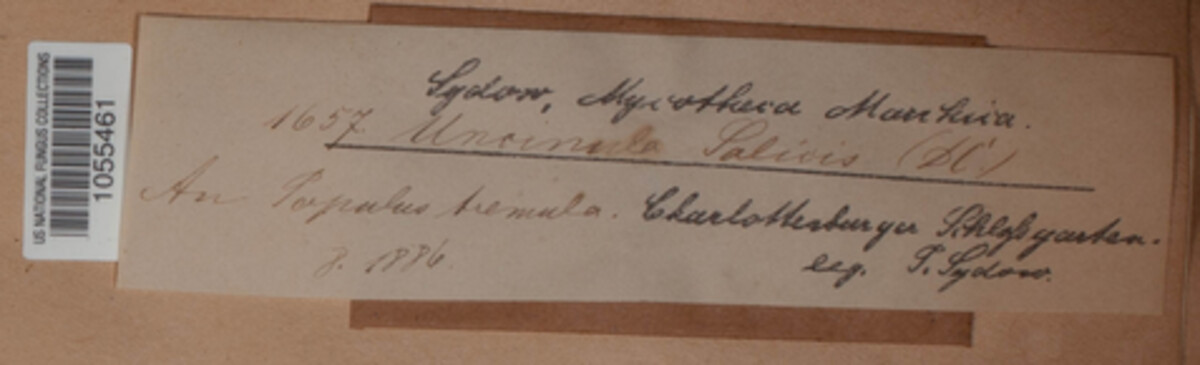 US NATIONAL FUNGUS COLLECTIONS
1055461
Sydow, Mycotheca Marchica.
1657. Uncinula Salicis (DC)
An Populus tremula. Charlottenburger Schloßgarten.
8. 1886. leg. P. Sydow.